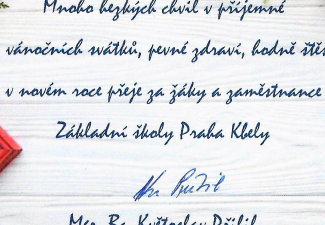 Mnoho hezkých chvil v příjemné
vánočních svátků, pevné zdraví, hodně štěs
v novém roce přeje za žáky a zaměstnance
Základní školy Praha Kbely
Mgr. Bc. Květoslav Přibil